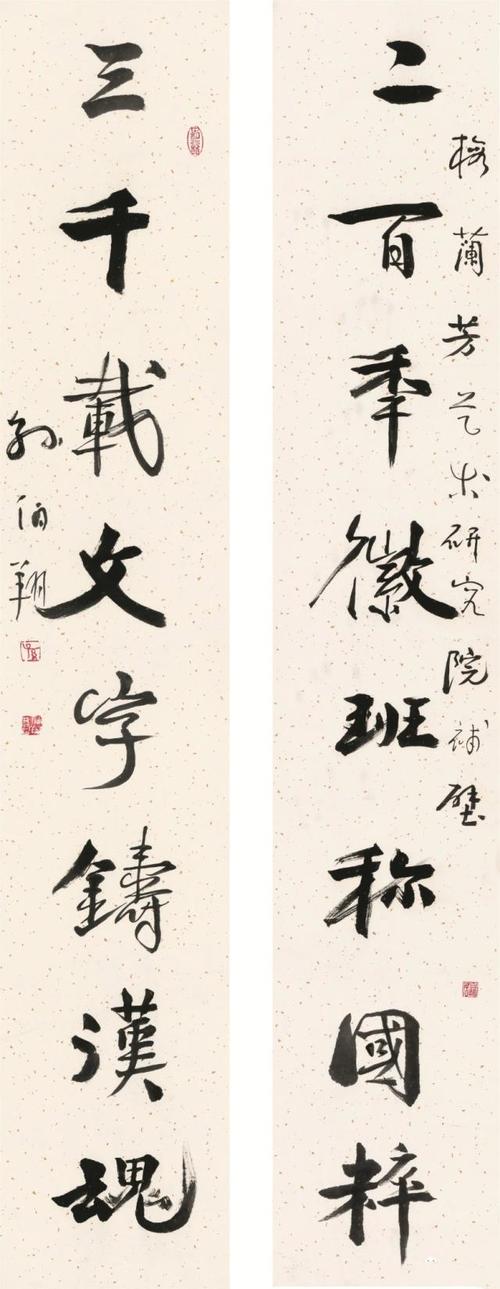 梅蘭芳艺术研究院補壁
二百秊徽班称國粹
三千載文字鑄漢魂
孫伯翔